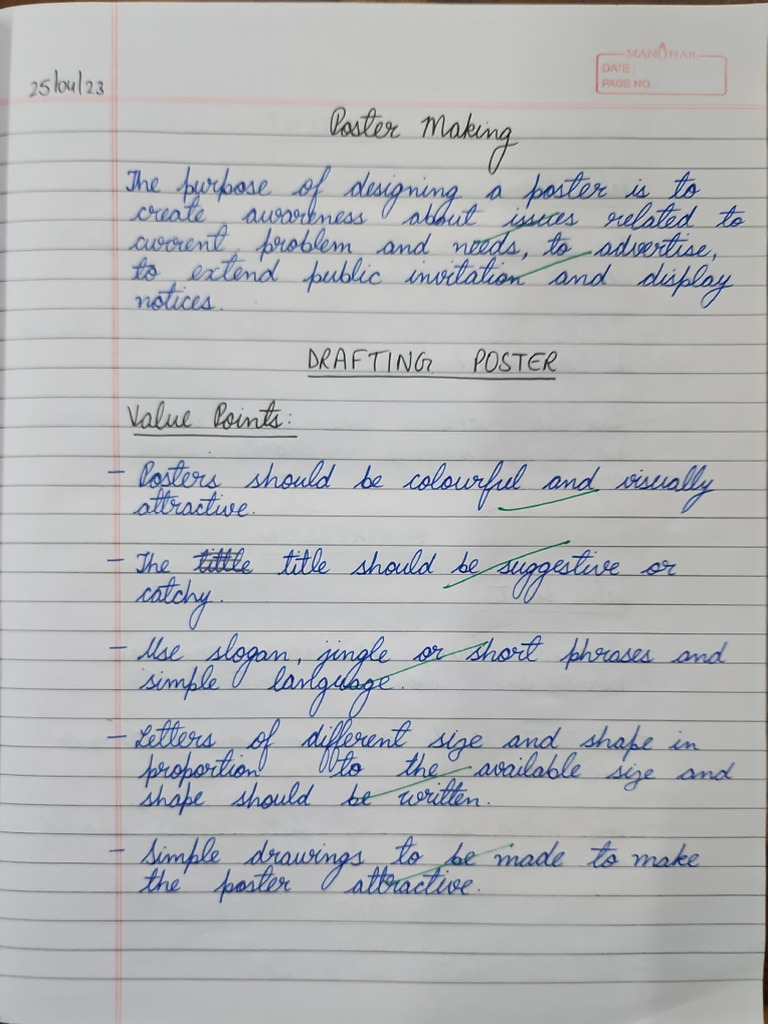 MANOHAR
DATE:
PAGE NO.
25/04/23
Poster Making
The purpose of designing a poster is to
create awareness about issues related to
current problem and needs, to advertise,
to extend public invitation and display
notices.
DRAFTING POSTER
Value Points:
- Posters should be colourful and visually
attractive.
- The tittle title should be suggestive or
catchy.
- Use slogan, jingle or short phrases and
simple language.
- Letters of different size and shape in
proportion to the available size and
shape should be written.
- Simple drawings to be made to make
the poster attractive.